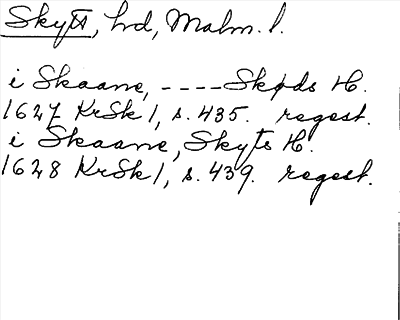 Skytt, hrd, Malm. l.
i Skaane, ---- Skøds H.
1627 KrSk 1, s. 435. regest.
i Skaane, Skyts H.
1628 KrSk 1, s. 439. regest.